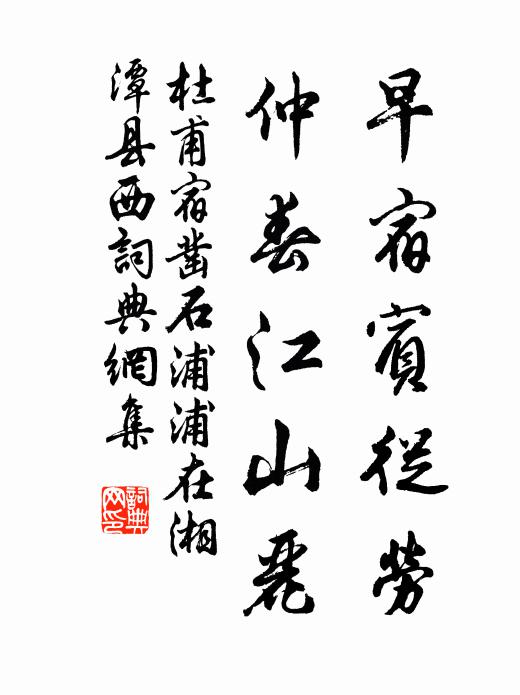 早宿賓從勞
仲春江山麗
杜甫宿凿石浦浦在湘
潭县西詞典網集
詞典
网印